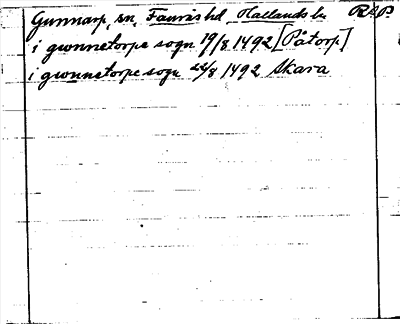 Gunnarp, sn, Faurås hd, Hallands lv RAP
i gwnnetorpe sogn 19/8 1492 [Påtorp]
i gwnnetorpe sogn 22/8 1492 Skara